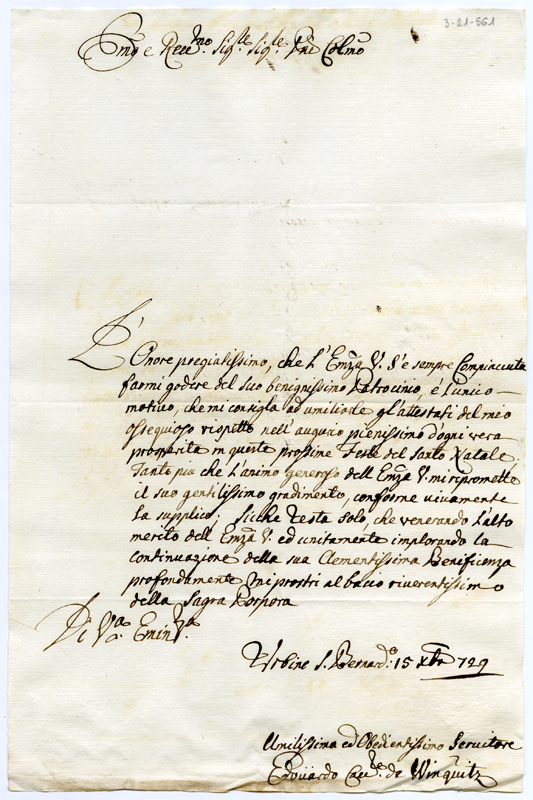 3-21-561
Emo e Reu.mo Sig.re Sig.re Pne Colmo
L'Onore pregiatissimo, che l'Emza V. s'è sempre Compiaciuta
farmi godere del suo benignissimo Patrocinio, è l'unico
motivo, che mi consiglia ad umiliarle gl'attestati del mio
ossequioso rispetto nell'augurio pienissimo d'ogni vera
prosperità in queste prossime Feste del Santo Natale.
Tanto più che l'animo generoso dell'Emza V. mi ripromette
il suo gentilissimo gradimento, conforme vivamente
la supplico; Sicche resta solo, che venerando l'alto
merito dell'Emza V. ed unitamente implorando la
continuazione della sua Clementissima Beneficenza
profondamente mi prostri al bacio riverentissimo
della Sagra Porpora
Di V.a Emin.za
Urbino S. Bernard.o 15 Xbre 729
Umilissimo ed Obedientissimo Servitore
Edoüardo Cau.re de Winqüitz